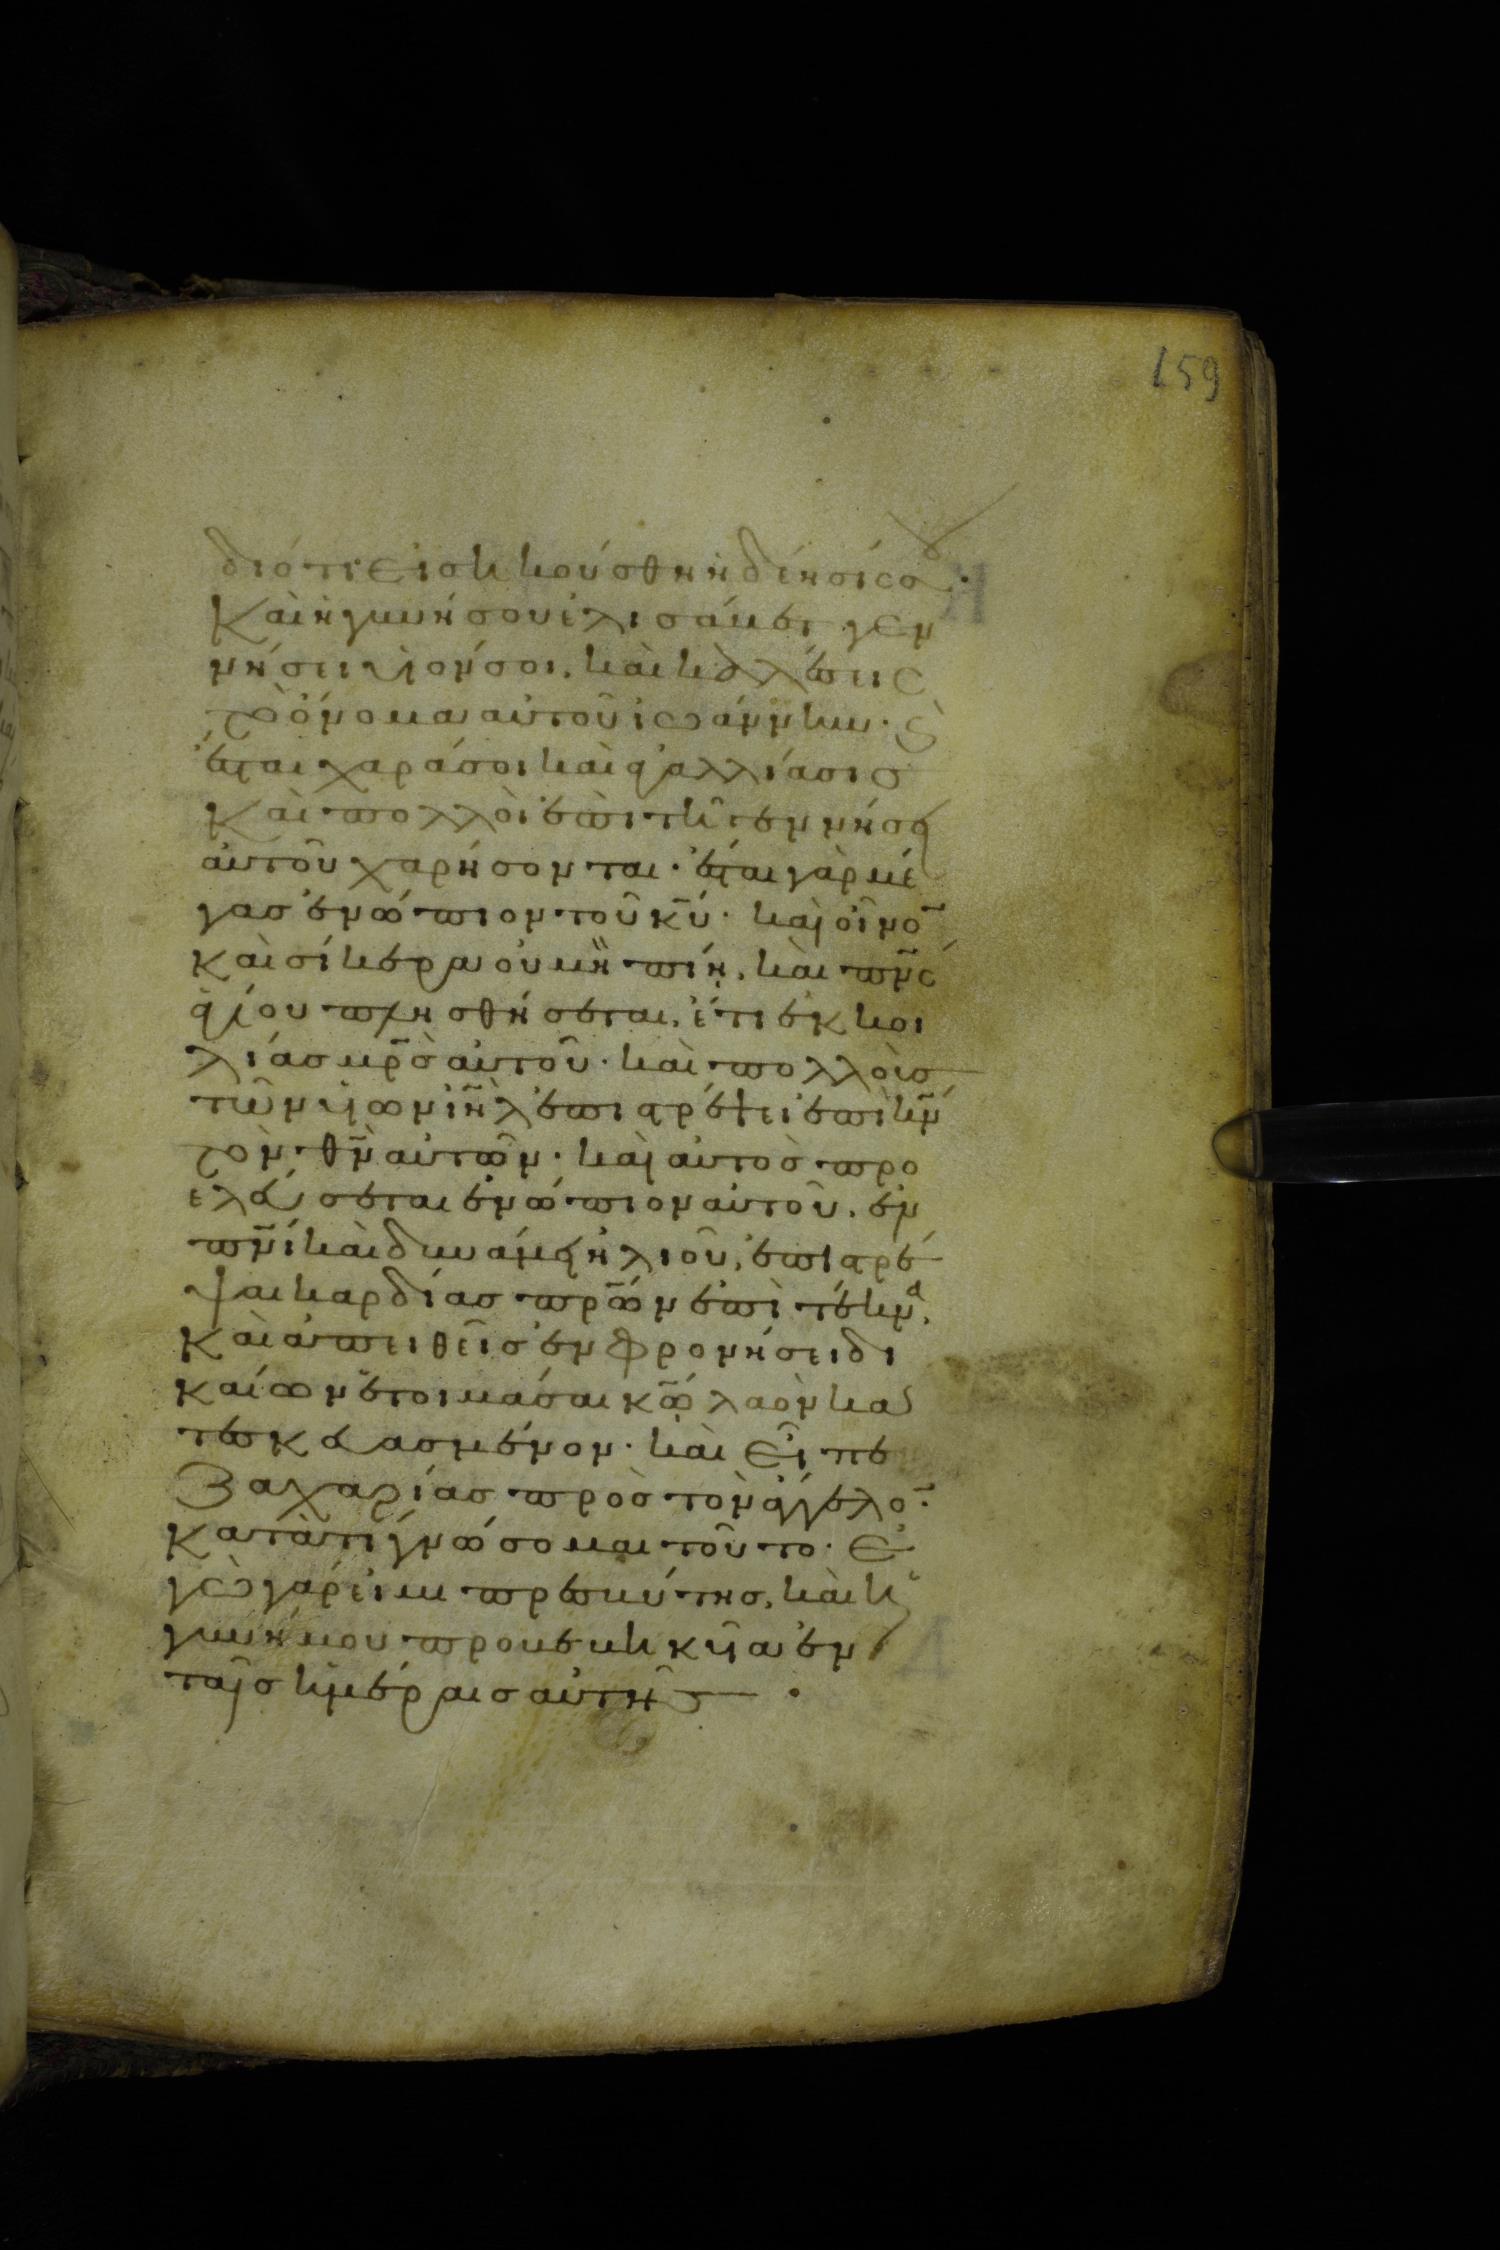 159
διότι εἰσηκούσθη ἡ δέησίς σου.
Καὶ ἡ γυνή σου ἐλισάβετ γεν
νήσει υἱόν σοι, καὶ καλέσεις
τὸ ὄνομα αὐτοῦ ἰωάννην. ϗ
ἔσται χαρά σοι καὶ ἀγαλλίασις
Καὶ πολλοὶ ἐπὶ τῆ γεννήσει
αὐτοῦ χαρήσονται. ἔσται γὰρ μέ
γας ἐνώπιον τοῦ κ̅υ̅. καὶ οἶνο̅
καὶ σίκερα οὐ μὴ πίη, καὶ π̅ν̅ς
ἁγίου πλησθήσεται, ἔτι ἐκ κοι
λίας μ̅ρ̅ς αὐτοῦ. καὶ πολλοὺς
τῶν υἱῶν ι̅η̅λ̅ ἐπιστρέψει ἐπὶ κ̅ν̅
τὸν θ̅ν̅ αὐτῶν. καὶ αὐτὸς προ
ελεύσεται ἐνώπιον αὐτοῦ, ἐν
π̅ν̅ι καὶ δυνάμει ἠλιοῦ, ἐπιστρέ
ψαι καρδίας π̅ρ̅ων ἐπὶ τέκνα,
καὶ ἀπειθεῖς ἐν φρονήσει δι
καίων ἑτοιμάσαι κ̅ω̅ λαὸν κα
τεσκευασμένον. καὶ εἶπε
Ζαχαρίας πρὸς τὸν ἄγγελο̅.
Κατὰ τί γνώσομαι τοῦτο. Ἐ
γὼ γάρ εἰμι πρεσβύτης, καὶ ἡ
γυνή μου προβεβηκυῖα ἐν
ταῖς ἡμέραις αὐτῆς.